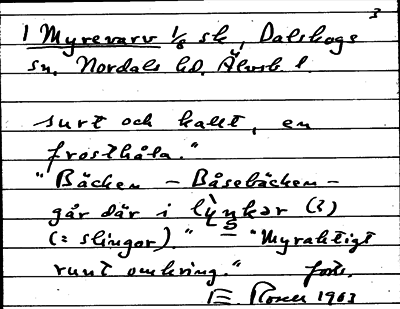 3
1 Myrevarv 1/8 sk, Dalskogs
sn. Nordals hd. Älvsb l.
surt och kallt, en
frosthåla."
"Bäcken – Båsebäcken –
går där i lỳnkər (?)
(= slingor)." – "Myraktigt
runt omkring." forts.
1963